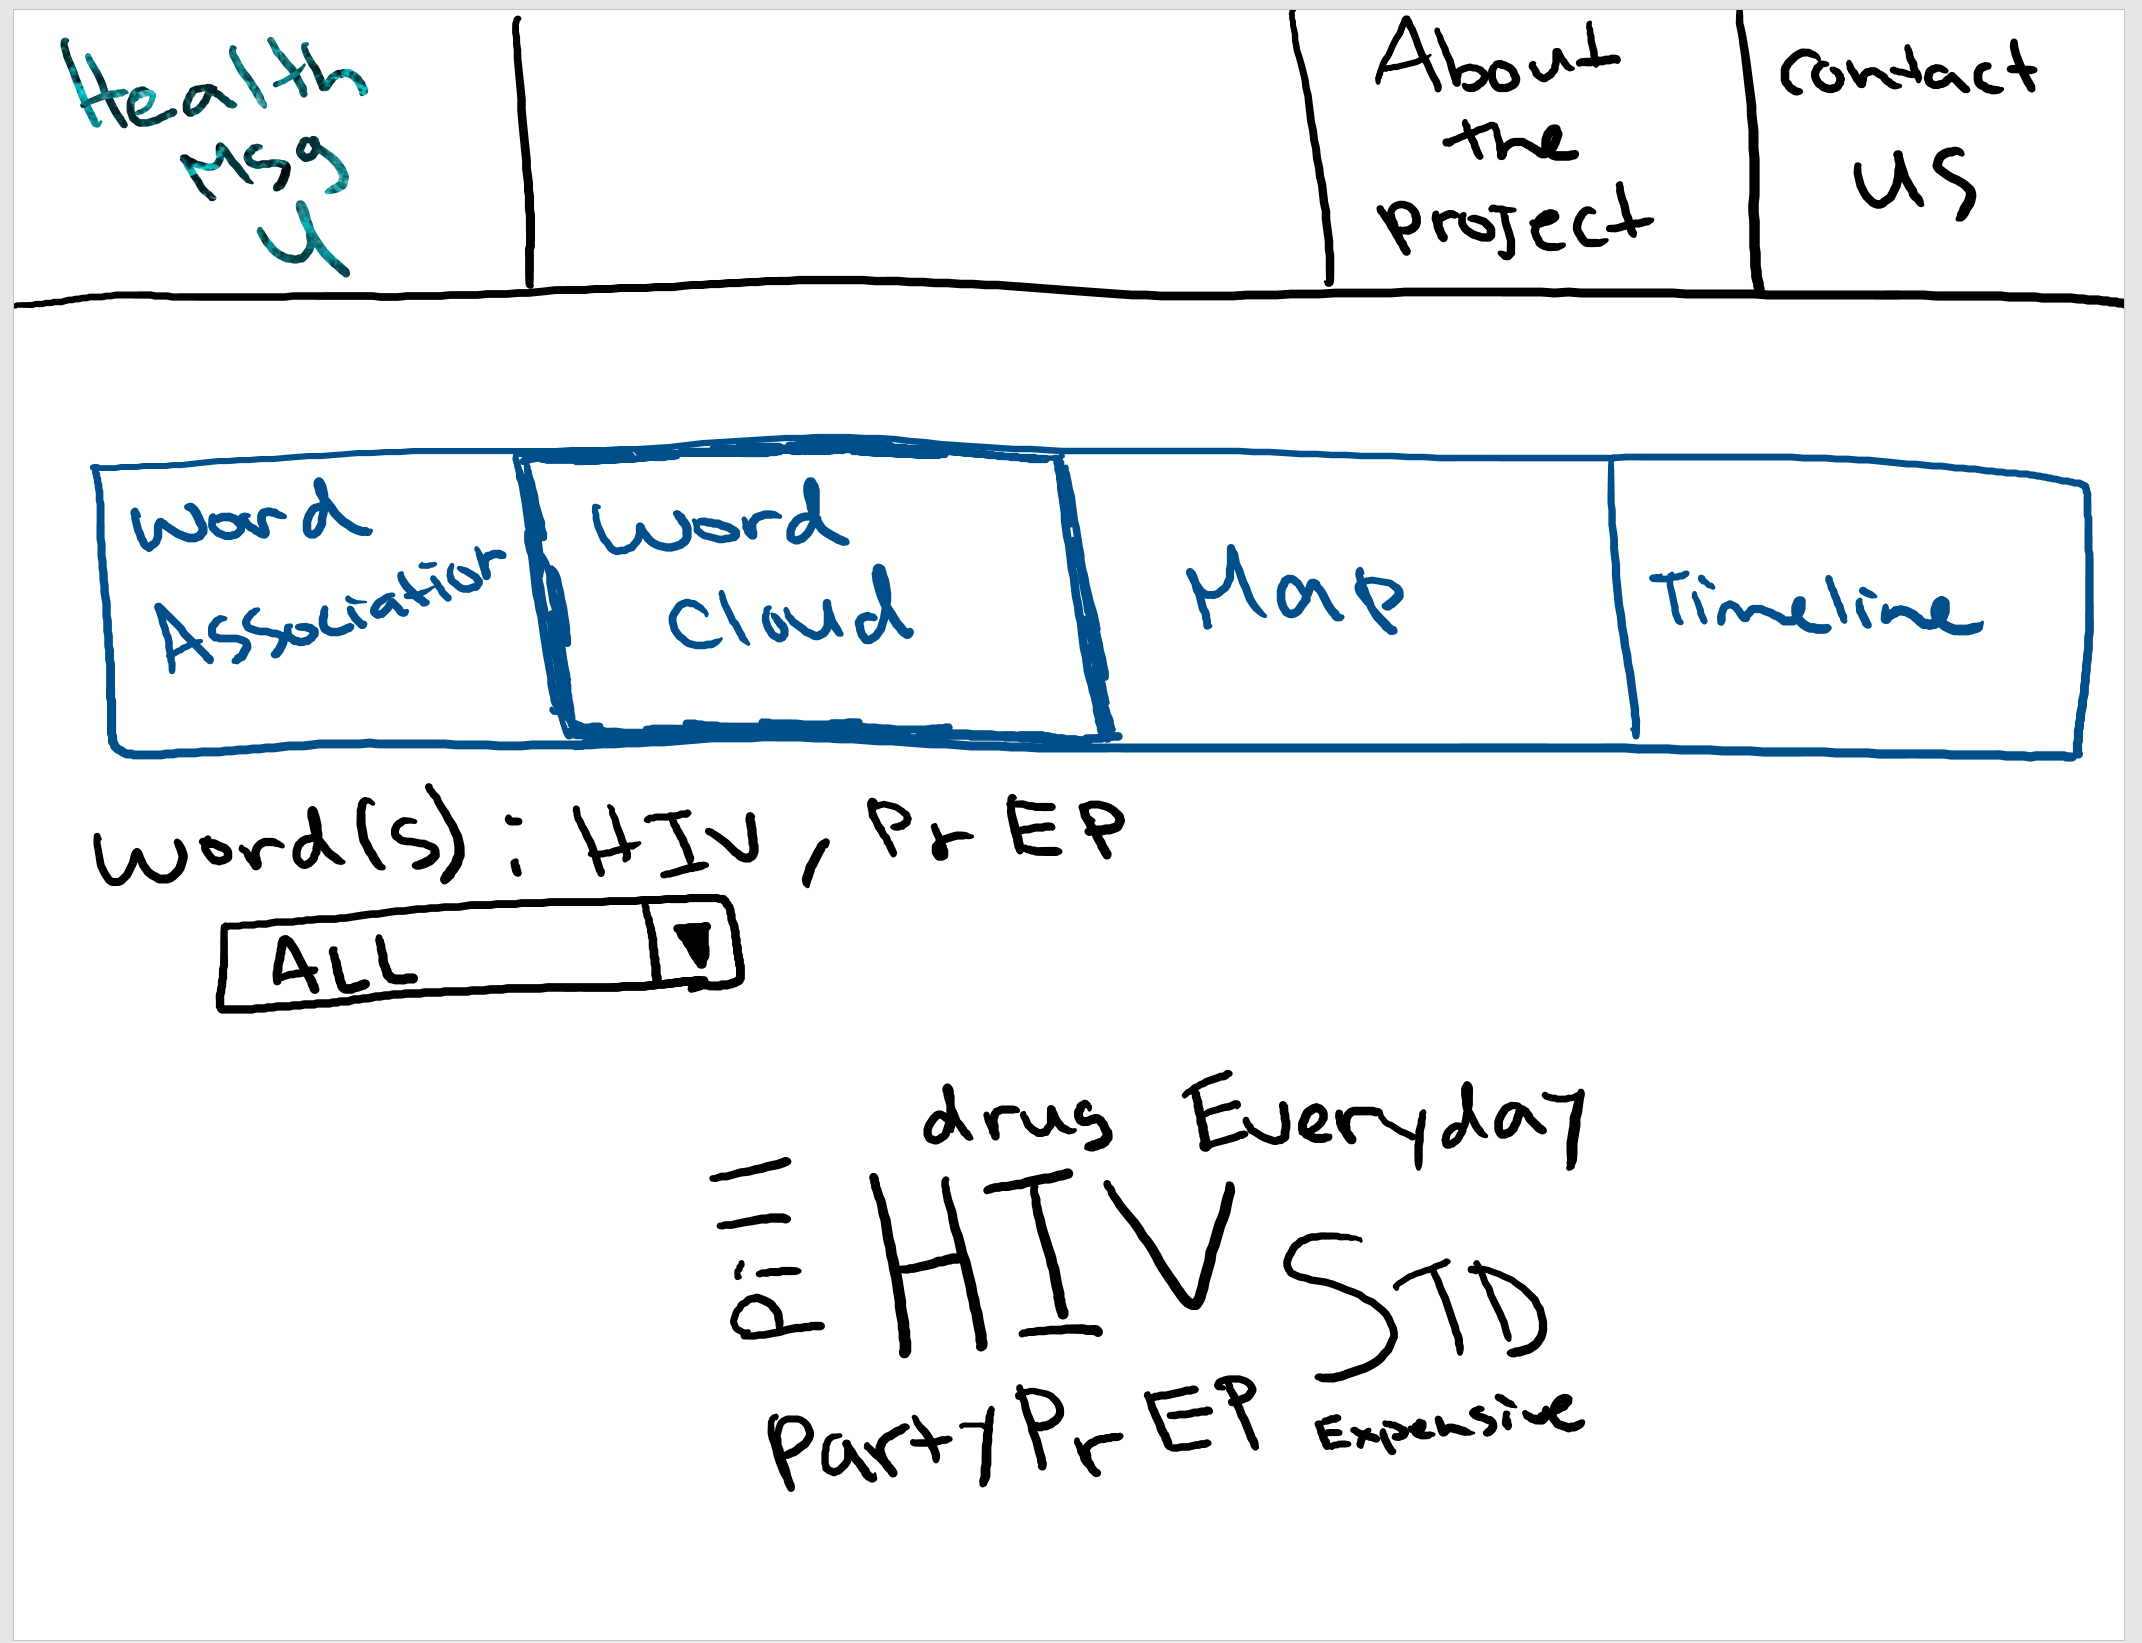 Health
Msg
4
About
the
project
Contact
US
Word
Association
Word
Cloud
Map
Timeline
Word(s): HIV, PrEP
ALL
drug Everyday
HIV
STD
Pill
Party PrEP Expensive